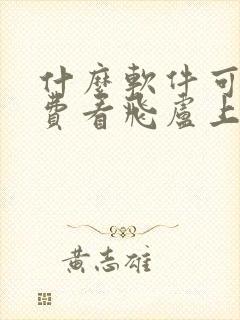 什麼軟件可
費看飛盧上
黃志雄